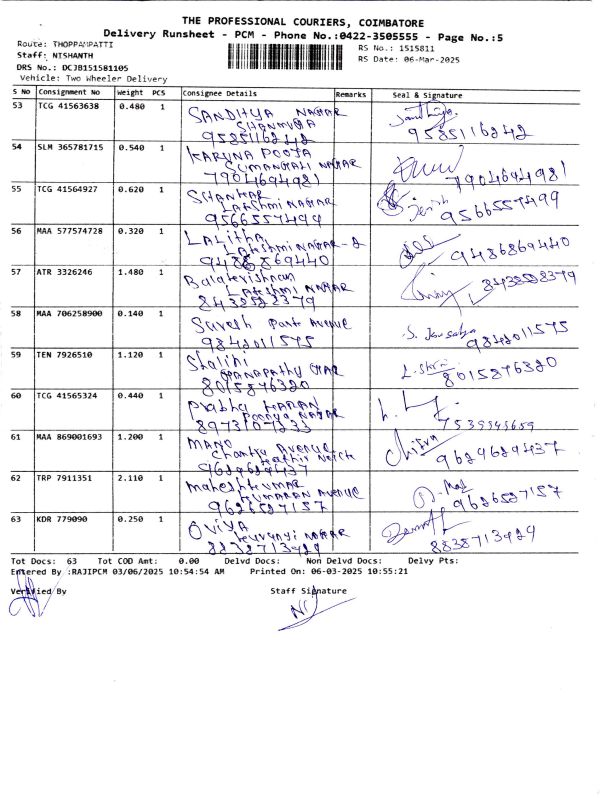 THE PROFESSIONAL COURIERS, COIMBATORE
Delivery Runsheet - PCM - Phone No.:0422-3505555 - Page No.:5
Route: THOPPAMPATTI
Staff: NISHANTH
RS No.: 1515811
DRS No.: DCJB151581105
RS Date: 06-Mar-2025
Vehicle: Two Wheeler Delivery
S No Consignment No Weight PCS Consignee Details Remarks Seal & Signature
53 TCG 41563638 0.480 1 SANDHYA NAGAR
SHANMUGA
9585116242 9585116242
54 SLM 365781715 0.540 1 KARUNA POOJA
GUMANGALI NAGAR
7904694981 7904694981
55 TCG 41564927 0.620 1 SHANKAR
LAKSHMI NAGAR
9566557499 9566557499
56 MAA 577574728 0.320 1 LALITHA
LAKSHMI NAGAR-2
9486869440 9486869440
57 ATR 3326246 1.480 1 Balakrishnan
LAKSHMI NAGAR
8438528379 8438528379
58 MAA 706258900 0.140 1 Suresh Park Avenue S. Kousalya
9842011575 9842011575
59 TEN 7926510 1.120 1 Shalini
GANAPATHY NAGAR
8015876320 8015876320
60 TCG 41565324 0.440 1 Prabha KARAN
Poonga NAGAR
8973107233
61 MAA 869001693 1.200 1 MANO Chitra
Avenue
9629629437 9629629437
62 TRP 7911351 2.110 1 MAHESHKUMAR
KUMARAN Avenue
9626527157 9626527157
63 KDR 779090 0.250 1 OVIYA
NAGAR
8838713429 8838713429
Tot Docs: 63 Tot COD Amt: 0.00 Delvd Docs: Non Delvd Docs: Delvy Pts:
Entered By :RAJIPCM 03/06/2025 10:54:54 AM Printed On: 06-03-2025 10:55:21
Verified By Staff Signature